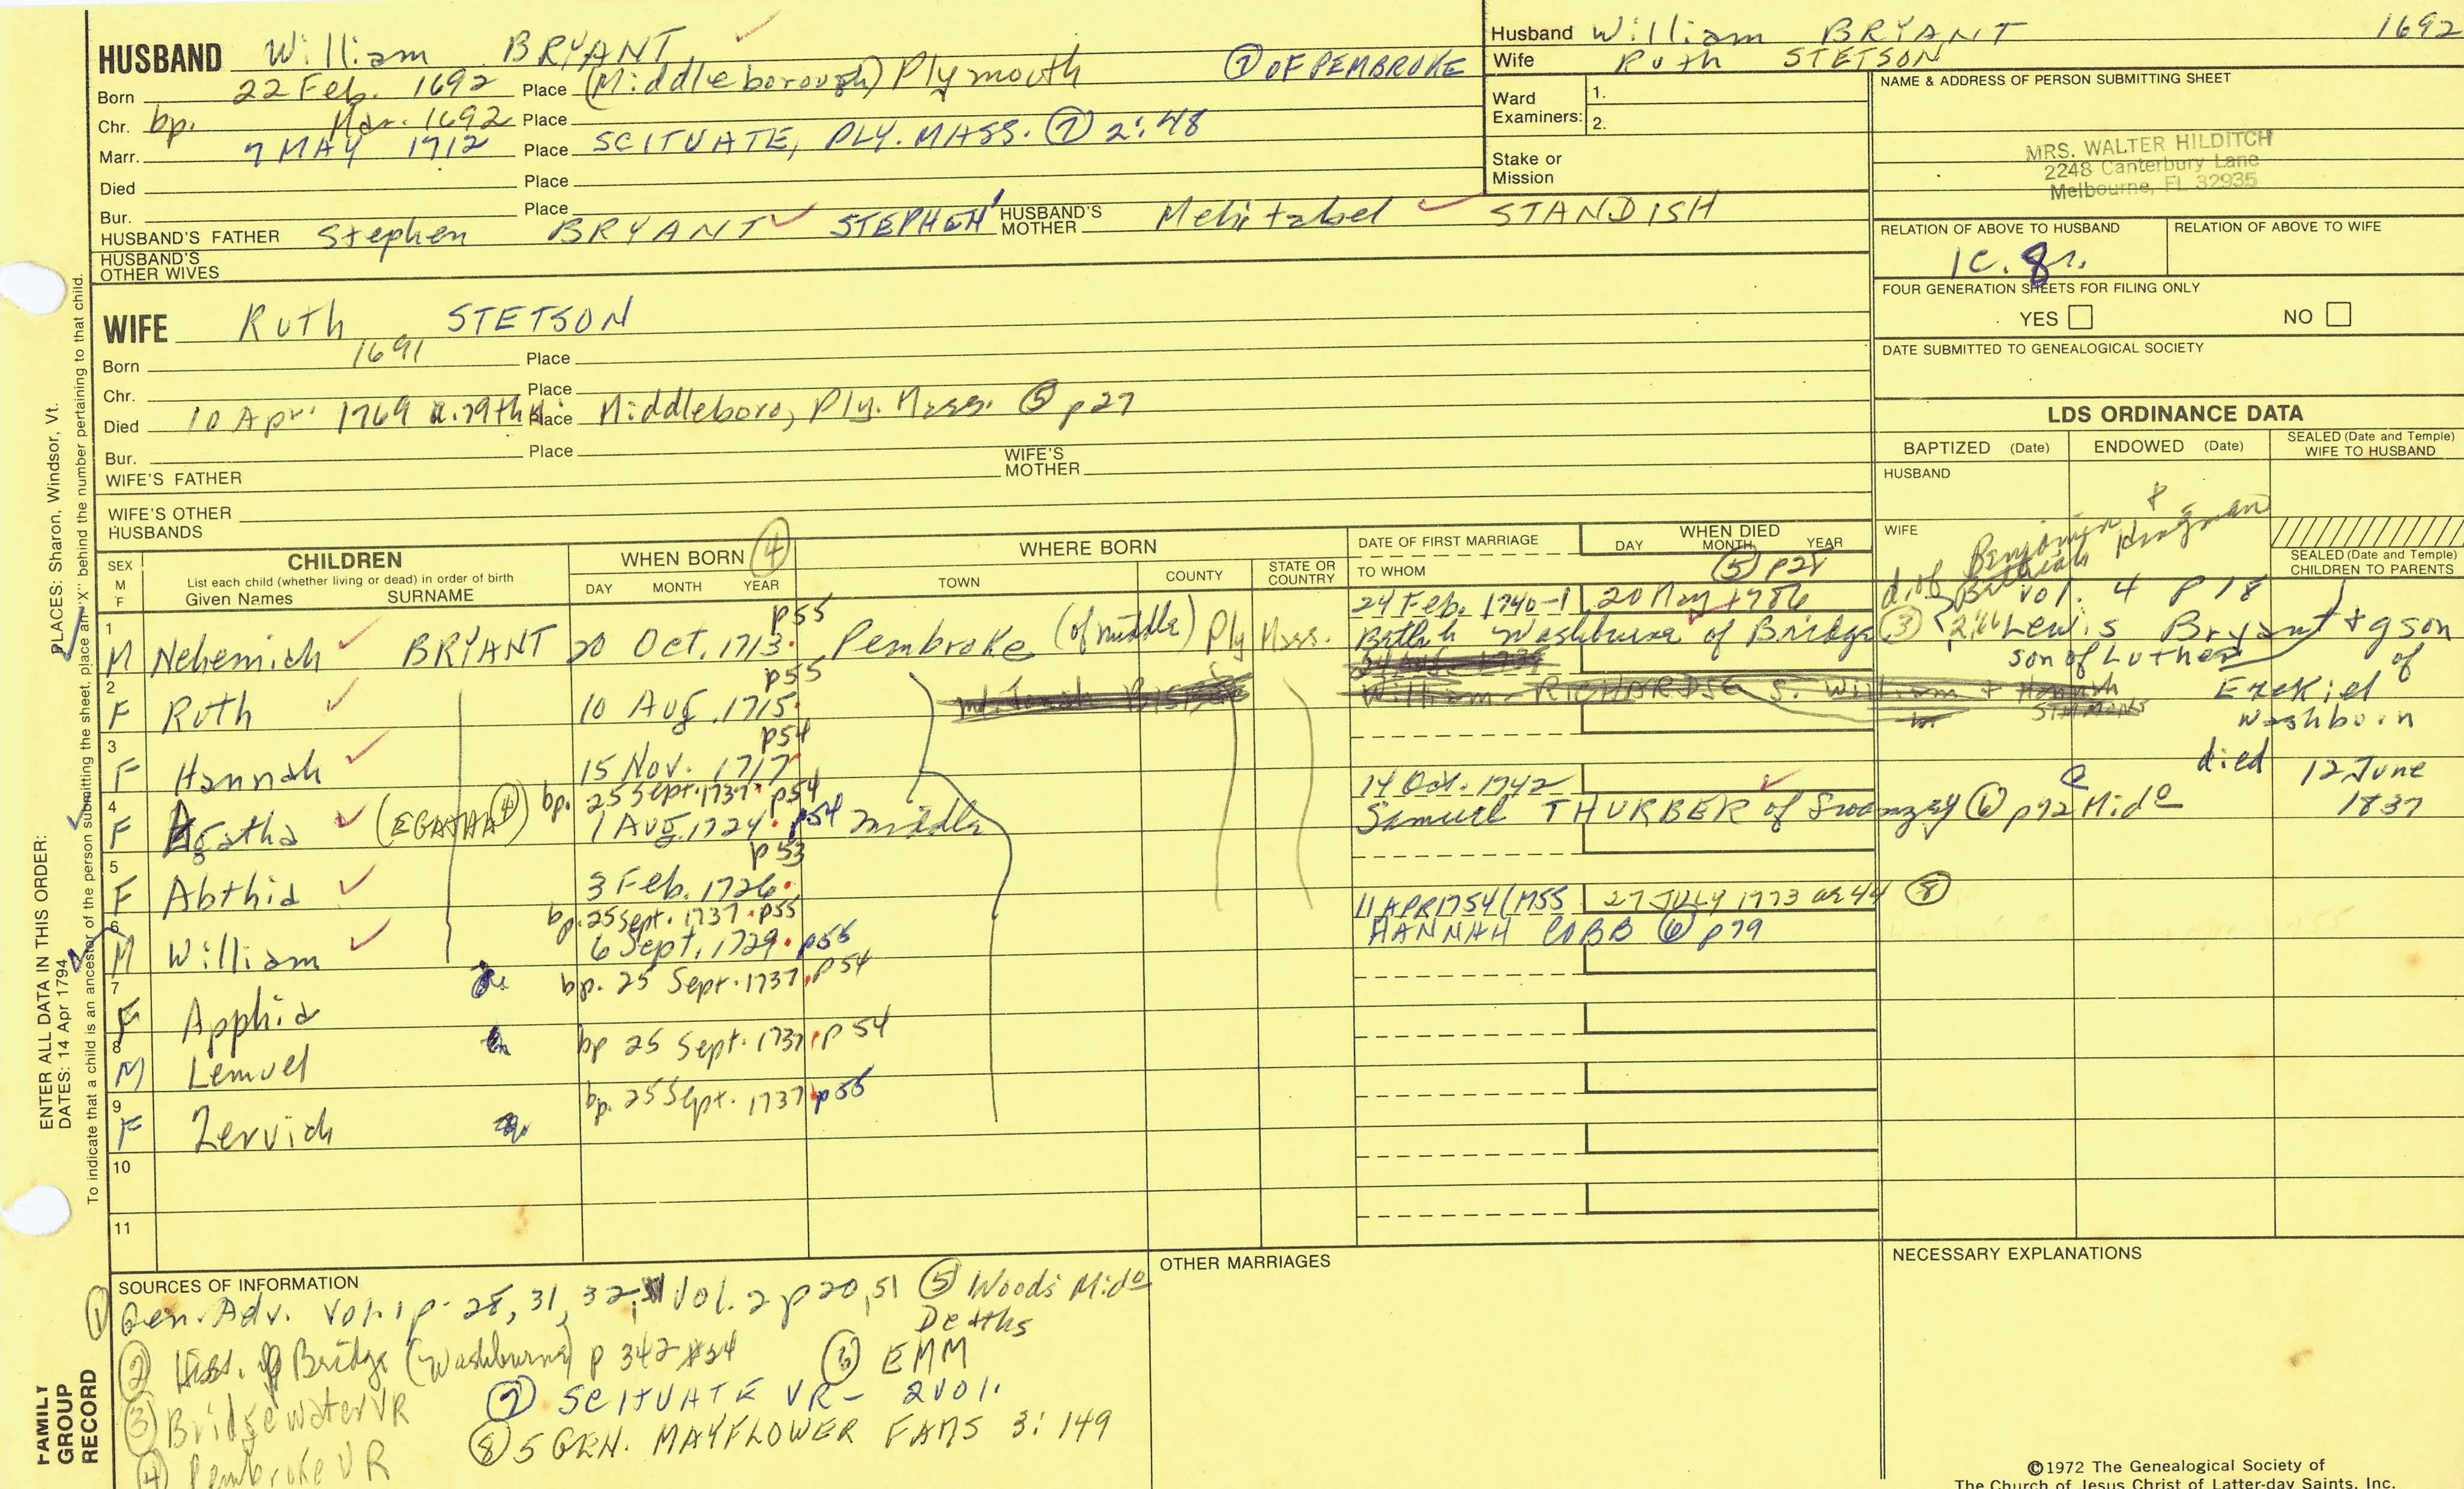 HUSBAND William BRYANT
Born 22 Feb. 1692 Place (Middleborough) Plymouth ⑦ OF PEMBROKE
Chr. bp. Mar. 1692 Place
Marr. 7 MAY 1712 Place SCITUATE, PLY. MASS. ⑦ 2:48
Died Place
Bur. Place
HUSBAND'S FATHER Stephen BRYANT STEPHEN' HUSBAND'S MOTHER Mehitabel STANDISH
HUSBAND'S OTHER WIVES
WIFE Ruth STETSON
Born 1691 Place
Chr. Place
Died 10 Apr. 1769 a. 79th Place Middleboro, Ply. Mass. ⑤ p27
Bur. Place
WIFE'S FATHER WIFE'S MOTHER
WIFE'S OTHER HUSBANDS
Husband William BRYANT 1692
Wife Ruth STETSON
Ward Examiners: 1.
2.
Stake or Mission
NAME & ADDRESS OF PERSON SUBMITTING SHEET
MRS. WALTER HILDITCH
2248 Canterbury Lane
Melbourne, FL 32935
RELATION OF ABOVE TO HUSBAND RELATION OF ABOVE TO WIFE
1C. 8r.
FOUR GENERATION SHEETS FOR FILING ONLY
YES NO
DATE SUBMITTED TO GENEALOGICAL SOCIETY
LDS ORDINANCE DATA
BAPTIZED (Date) ENDOWED (Date) SEALED (Date and Temple) WIFE TO HUSBAND
HUSBAND
WIFE
SEALED (Date and Temple) CHILDREN TO PARENTS
d. of Benjamin & Bethiah Kingman
SEX M F
CHILDREN
List each child (whether living or dead) in order of birth
Given Names SURNAME
WHEN BORN ④
DAY MONTH YEAR
WHERE BORN
TOWN COUNTY STATE OR COUNTRY
DATE OF FIRST MARRIAGE
TO WHOM
WHEN DIED
DAY MONTH YEAR
⑤ p28
1 M Nehemiah BRYANT 20 Oct. 1713 p55 Pembroke (of middle) Ply Mass. 24 Feb. 1740-1 20 May 1786
Bethiah Washburne of Bridge ③ 2:66
vol. 4 p 18
Lewis Bryant + gson
son of Luther of
Ezekiel
Washburn
died 12 June
1837
2 F Ruth 10 Aug. 1715 p55
William RICHARDS S. William + Hannah SIMMONS
3 F Hannah 15 Nov. 1717 p54
4 F Agatha (EGATHA ④) bp. 25 Sept. 1737 p54
1 Aug 1724 p54 middle
14 Oct. 1742
Samuel THURBER of Swanzey ⑥ p72 Mido
5 F Abthia 3 Feb. 1726 p53
6 M William bp. 25 Sept. 1737 p55
6 Sept. 1729 p55
11 APR 1754 (MSS 27 JULY 1773 ae 44 ⑧
HANNAH COBB ⑥ p79
7 F Apphia bp. 25 Sept. 1737 p54
8 M Lemuel bp 25 Sept. 1737 p 54
9 F Zerviah bp. 25 Sept. 1737 p55
10
11
SOURCES OF INFORMATION
① Gen. Adv. Vol. 1 p- 28, 31, 32; Vol. 2 p 20, 51
② Hist. of Bridge (Washburne) p 342 #24
③ Bridgewater VR
④ Pembroke VR
⑤ Woods Mido Deaths
⑥ EMM
⑦ SCITUATE VR- 2 VOl.
⑧ 5 GEN. MAYFLOWER FAMS 3:149
OTHER MARRIAGES
NECESSARY EXPLANATIONS
©1972 The Genealogical Society of
The Church of Jesus Christ of Latter-day Saints, Inc.
ENTER ALL DATA IN THIS ORDER:
DATES: 14 Apr 1794
PLACES: Sharon, Windsor, Vt.
To indicate that a child is an ancestor of the person submitting the sheet, place an "X" behind the number pertaining to that child.
FAMILY GROUP RECORD